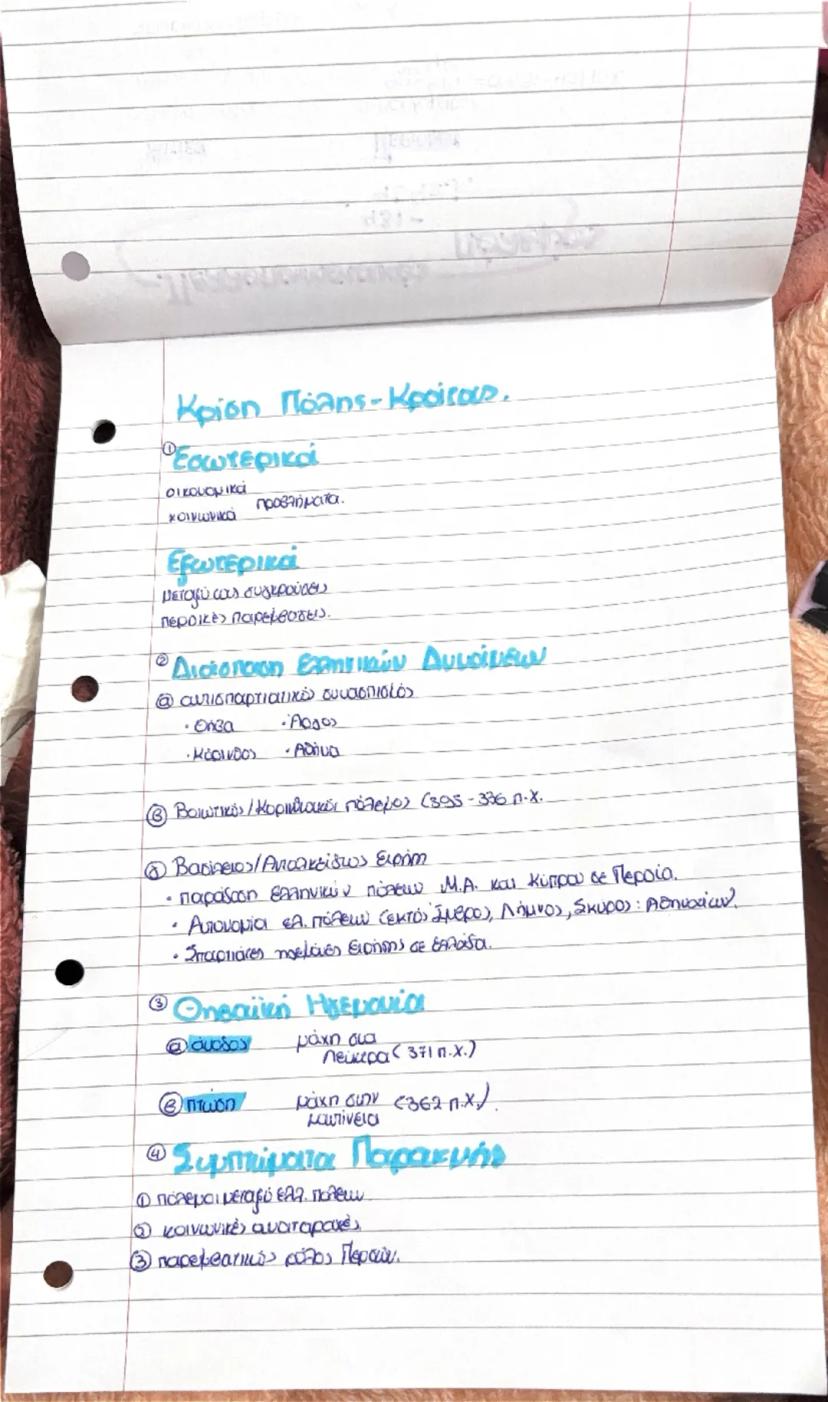 Κρίση Πόλης-Κράτους.
① Εσωτερικά
οικονομικά
κοινωνικά προβλήματα.
Εξωτερικά
μεταξύ τους συγκρούσεις
περσικές παρεμβάσεις.
② Διάσπαση Ελληνικών Δυνάμεων
ⓐ αντισπαρτιατικός συνασπισμός
· Θήβα · Άργος
· Κόρινθος · Αθήνα
ⓑ Βοιωτικός/Κορινθιακός πόλεμος (395-386 π.χ.
ⓖ Βασίλειος/Ανταλκίδειος Ειρήνη
· παράδοση ελληνικών πόλεων Μ.Α. και Κύπρου σε Περσία.
· Αυτονομία ελ. πόλεων (εκτός Ίμβρος, Λήμνος, Σκύρος: Αθηναίων).
· Σπαρτιάτες εγγυητές Ειρήνης σε Ελλάδα.
③ Θηβαϊκή Ηγεμονία
ⓐ άνοδος μάχη στα
Λεύκτρα (371 π.χ.)
ⓑ πτώση μάχη στην (362 π.χ.).
μαντίνεια
④ Συμπτώματα Παρακμής
① πόλεμοι μεταξύ ελλ. πόλεων
② κοινωνικές αναταραχές
③ παρεμβατικός ρόλος Περσών.